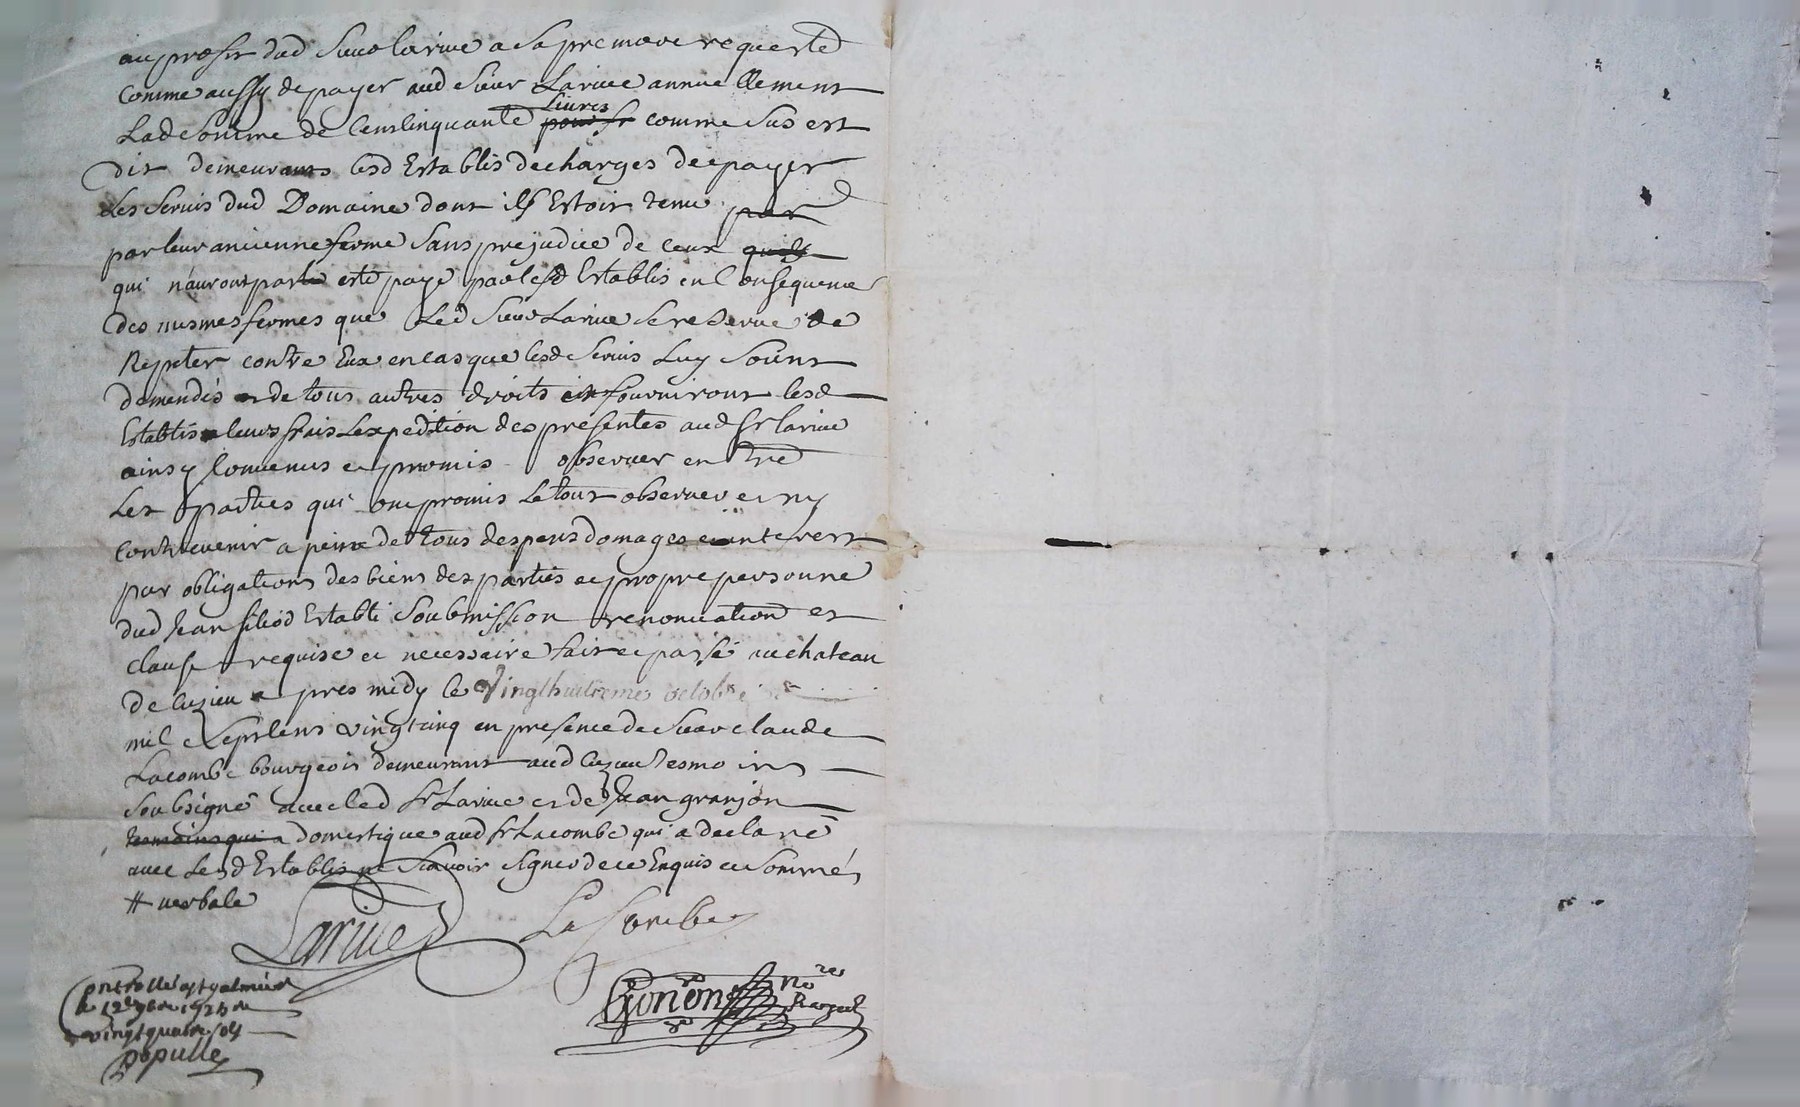 au proffit dud Sieur larive a sa premiere requeste
Comme aussy de payer aud sieur Larive annuellement
Lade Somme de Cent Cinquante livres comme sus est
dit demeurants lesd Establis decharges de payer
Les Servis dud Domaine dont ils Estoit tenu par
par leur ancienne ferme Sans prejudice de ceux
qui n'auront pas esté payé par lesd Establis en Consequence
des mesmes fermes que Led Sieur Larive se reserve de
Repeter contre Eux en cas que lesd Servis Luy Soint
demendés et de tous autres droits et fourniront lesd
Establis a leurs frais Lexpedition des presentes aud Sr larive
ainsy Convenus et promis observer entre
Les parties qui ont promis Le tout observer et ny
Contrevenir a peine de tous despens domages et interest
par obligations des biens des parties et propre personne
dud Jean Establi Soubmission renonciation et
clause requise et necessaire fait et passé au chateau
de Cuzieu apres midy le Vingt huitieme octobre
mil Sept Cens vingt cinq en presence de Sieur claude
Lacombe bourgeois demeurant aud Cuzieu tesmoins
Soubsigné avec led Sr Larive et de Jean granjon
domestique aud Sr Lacombe qui a declaré
avec Lesd Establis ne Scavoir signer de ce Enquis et Sommé
verbale
Larive
La Combe
Gonon
No re
Controllé a St galmier
le 12e 9bre
vingt quatre sols
populle